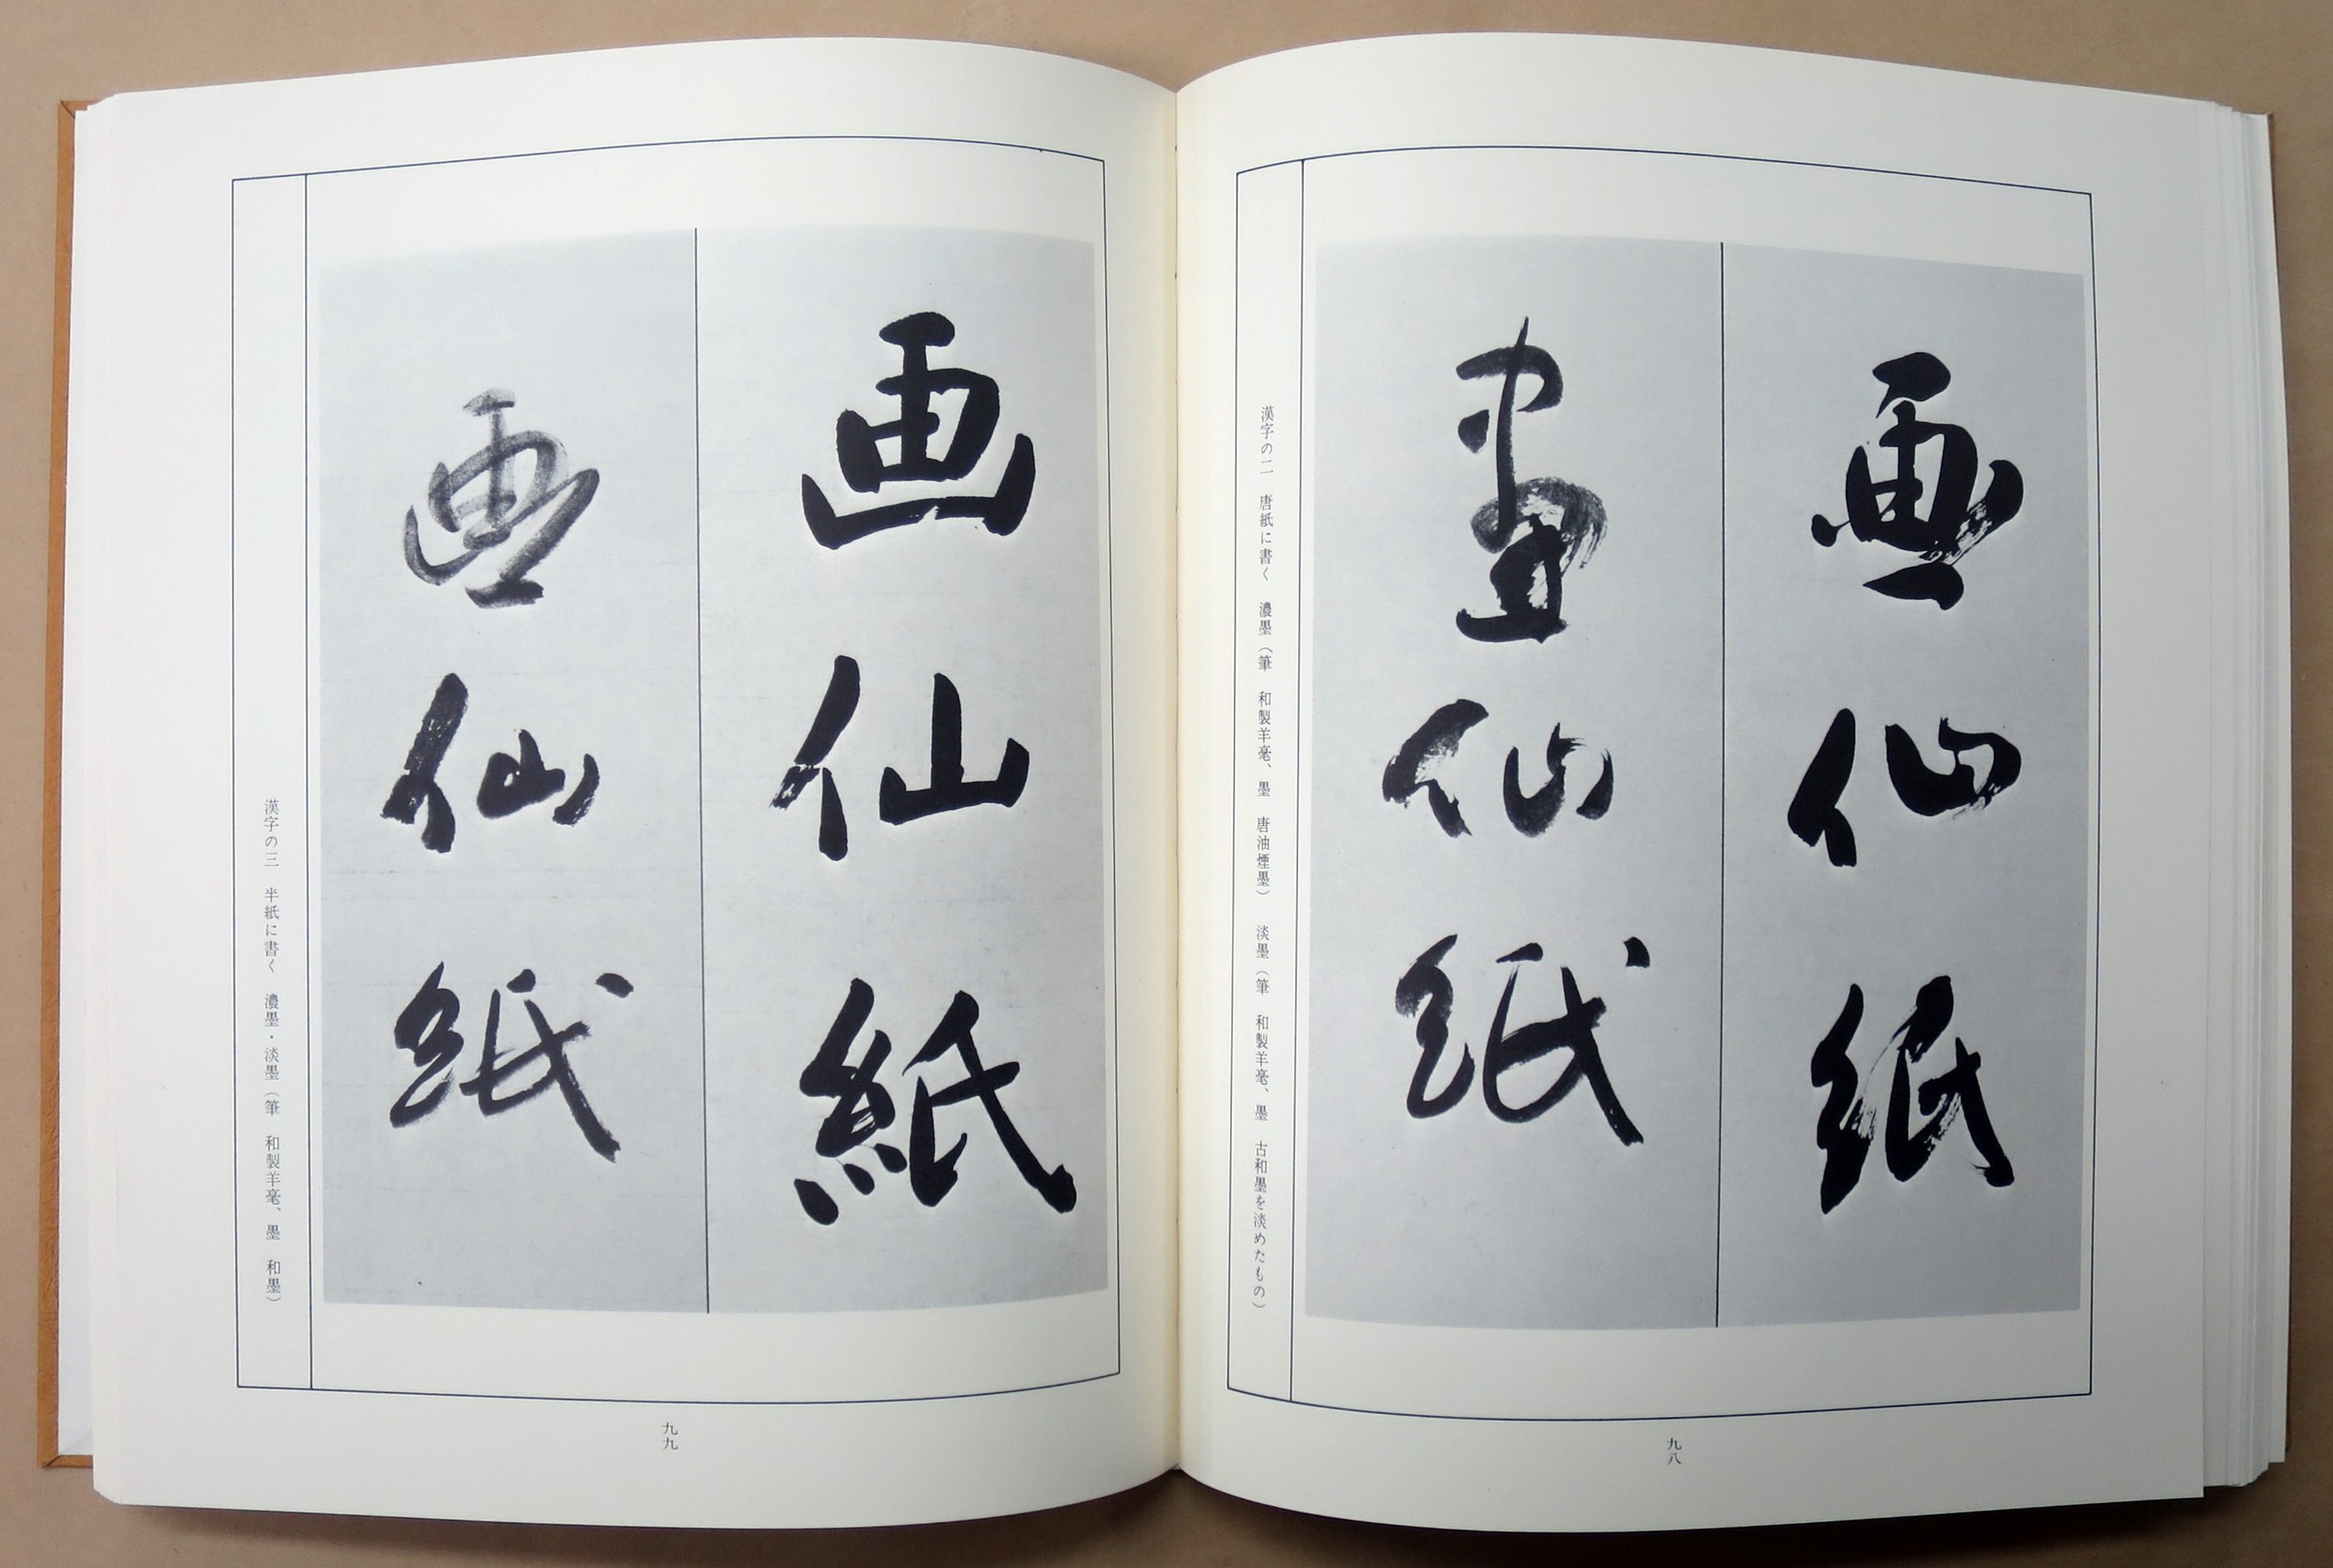 画仙紙
畫仙紙
漢字の二　唐紙に書く　濃墨（筆　和製羊毫、墨　唐油煙墨）　淡墨（筆　和製羊毫、墨　古和墨を淡めたもの）
九八
画仙紙
画仙紙
漢字の三　半紙に書く　濃墨・淡墨（筆　和製羊毫、墨　和墨）
九九